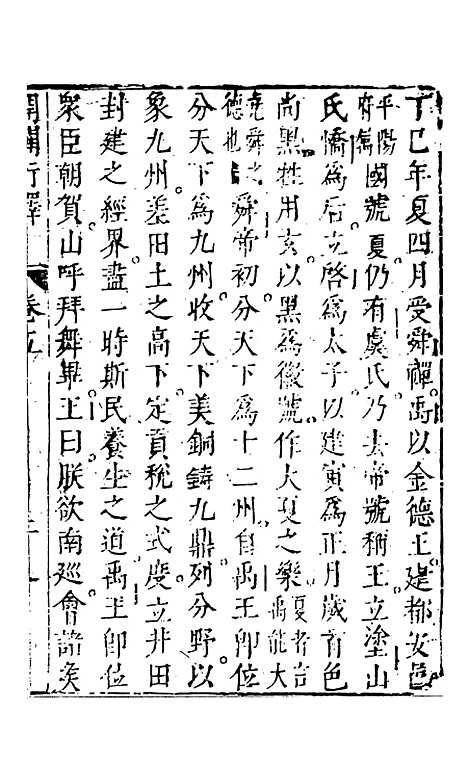 丁巳年夏四月受舜禪禹以金德王建都安邑
平陽府屬國號夏仍有虞氏乃去帝號稱王立塗山
氏憍爲后立啓爲太子以建寅爲正月歲首色
尚黑牲用玄以黑爲徽號作大夏之樂夏者言禹能大
堯舜之德也舜帝初分天下爲十二州自禹王卽位
分天下爲九州收天下美銅鑄九鼎列分野以
象九州差田土之高下定貢稅之式度立井田
封建之經界盡一時斯民養生之道禹王卽位
衆臣朝賀山呼拜舞畢王曰朕欲南廵會諸侯
開闢衍繹
卷五